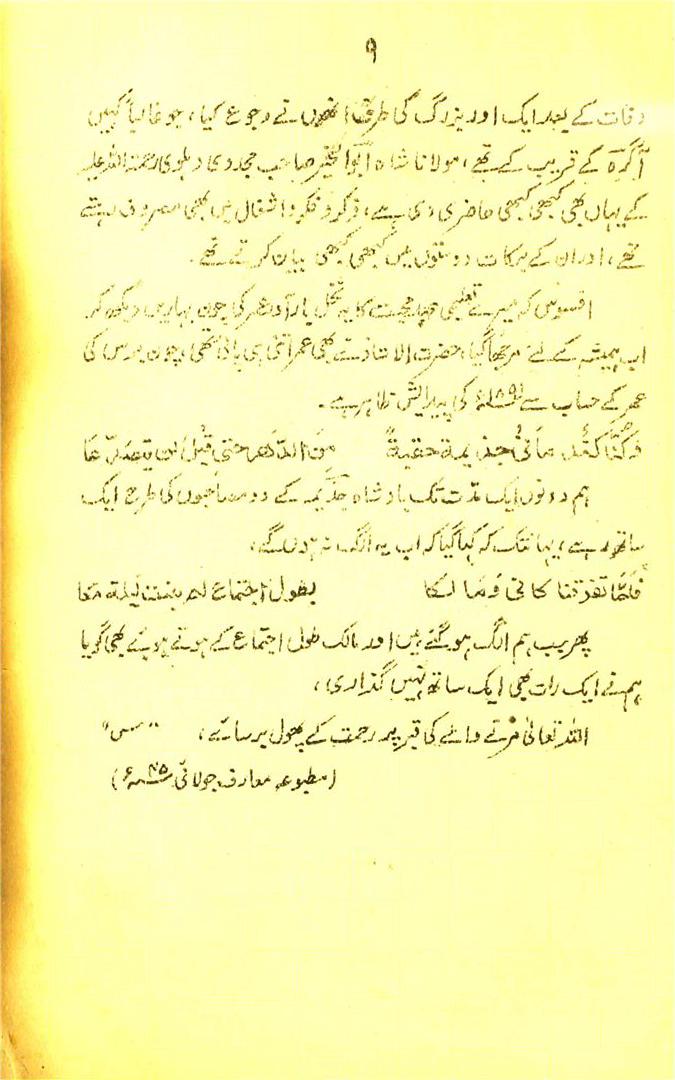 ۹
وفات کے بعد ایک اور بزرگ کی طرف انھوں نے رجوع کیا، جو غالباً کہیں
آگرہ کے قریب کے تھے، مولانا شاہ ابوالخیر صاحب مجددی دہلوی رحمۃ اللہ علیہ
کے یہاں بھی کبھی کبھی حاضری دی ہے، ذکر و فکر و اشغال میں بھی مصروف رہتے
تھے، اور ان کے برکات دوستوں میں کبھی کبھی بیان کرتے تھے۔
افسوس کہ میرے تعلیمی عہد محبت کا یہ نخل بارآور عمر کی چون بہاریں دیکھ کر
اب ہمیشہ کے لئے مرجھا گیا، حضرت الاستاذ نے بھی عمر اتنی ہی پائی تھی، چون برس کی
عمر کے حساب سے ۱۸۹۱ء کی پیدائش ظاہر ہے۔
وَكُنَّا كَنَدْمَانَيْ جذيمة حقبةً من الدهر حتى قيل لن يتصدّعا
ہم دونوں ایک مدت تک بادشاہ جذیمہ کے دو مصاحبوں کی طرح ایک
ساتھ رہے، یہاں تک کہ کہا گیا کہ اب یہ الگ نہ ہوں گے،
فلمّا تفرقنا كاني ومالكا بطول اجتماع لم نبت ليلة معا
پھر جب ہم الگ ہو گئے میں اور مالک طول اجتماع کے ہوتے ہوئے بھی گویا
ہم نے ایک رات بھی ایک ساتھ نہیں گذاری،
اللہ تعالیٰ مرنے والے کی قبر پر رحمت کے پھول برسائے، "س"
(مطبوعہ معارف جولائی ۴۵ء)